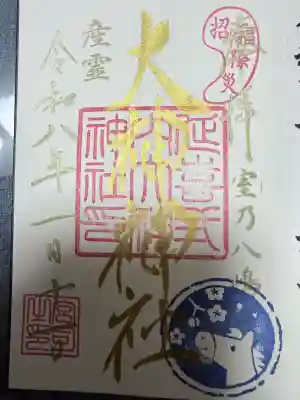 招福除災
室乃八嶋
大神神社
延喜式
内大神
神社印
産霊
令和八年一月